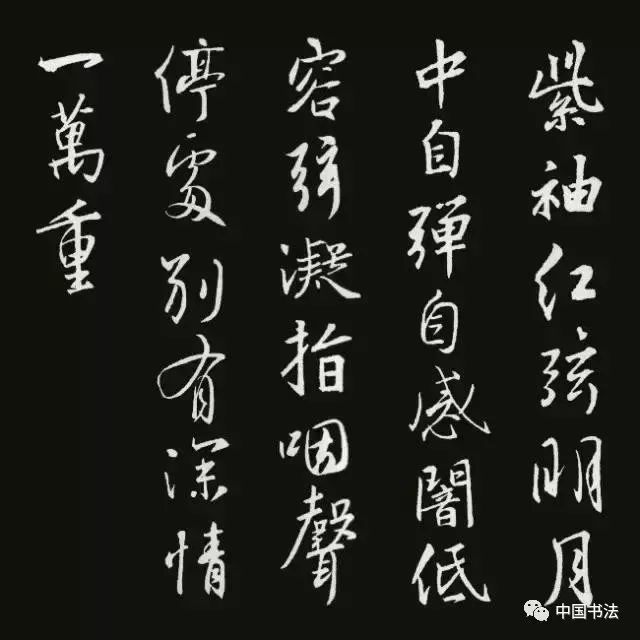 紫袖红弦明月
中自弹自感闇低
容弦凝指咽聲
停處别有深情
一萬重
中国书法